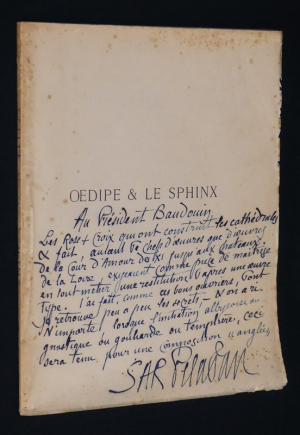 OEDIPE & LE SPHINX
Au Président Baudouin
Les Rose + Croix qui ont construit les cathédrales
& fait autant de chefs d'œuvres que d'œuvres
de la Cour d'Amour du XI jusqu'aux chateaux
de la Loire, exigeaient comme pièce de maîtrise
en tout métier une restitution d'après une œuvre
type. J'ai fait, comme ces bons ouvriers, dont
je retrouve peu a peu les secrets, – Non a ri
N'importe lorsque l'initiation
gnostique ou gouliarde ou templière, ceci
sera tenu pour une composition
SAR Peladan